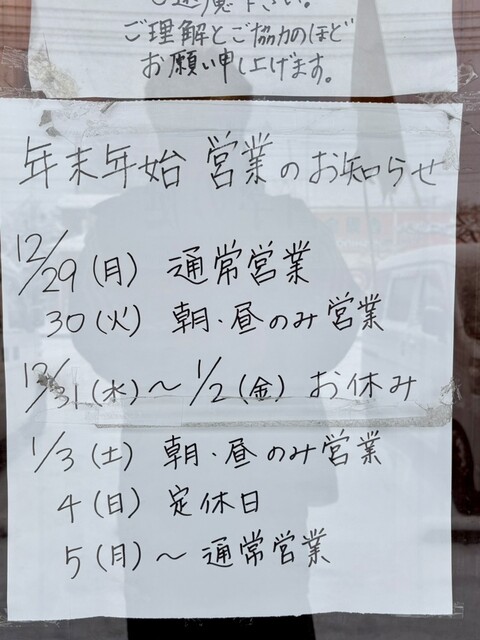 ご理解とご協力のほど
お願い申し上げます。
年末年始 営業のお知らせ
12/29(月) 通常営業
30(火) 朝・昼のみ営業
12/31(水)〜1/2(金) お休み
1/3(土) 朝・昼のみ営業
4(日) 定休日
5(月)〜通常営業